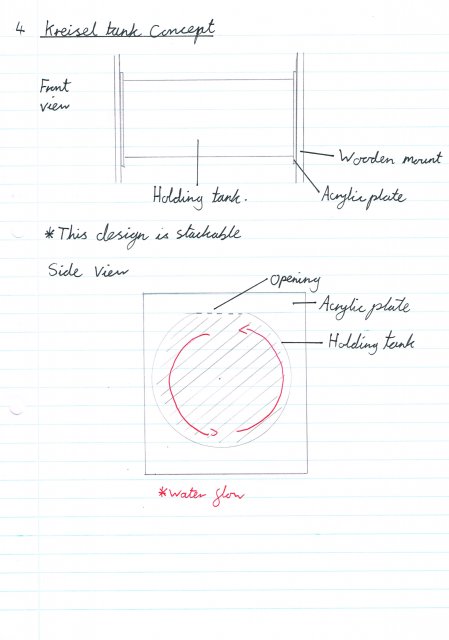 4 Kreisel tank Concept
Front
view
Wooden mount
Holding tank.
Acrylic plate
*This design is stackable
Side View
Opening
Acrylic plate
Holding tank
*Water flow